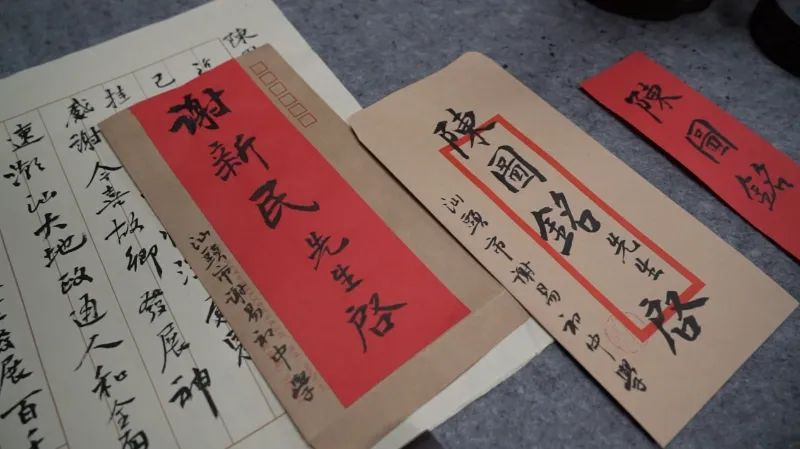 陳圖銘
陳圖銘先生啓
汕頭市謝易初中學
謝新民先生啓
汕頭市謝易初中學
陳
己
挂
感謝今喜故鄉發展神
速潮汕大地政通人和全面
發展百